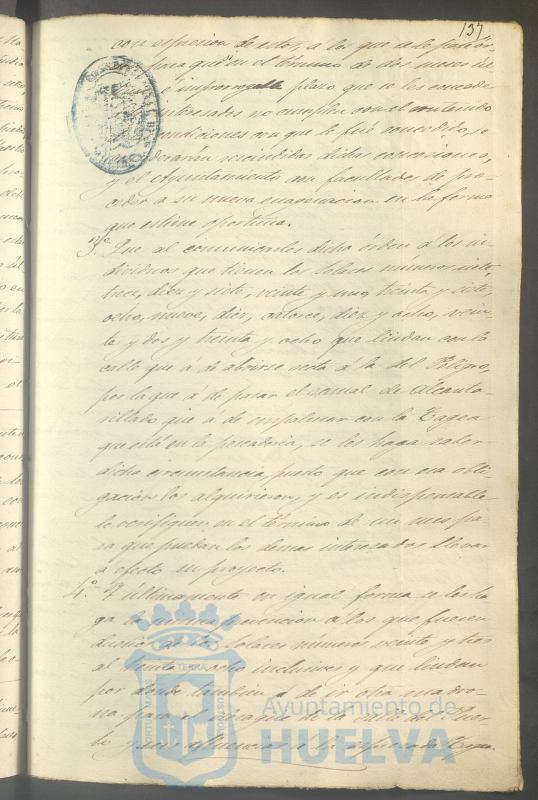 137
con espresion de estos, a los que se le pasará
para que en el termino de dos meses
é improrrogable plazo que se les concede
interesados no cumplen con el contenido
condiciones con que le fué concedido, se
declararán rescindidas dichas concesiones,
y el Ayuntamiento con facultades de pro-
ceder a su nueva enagenacion en la forma
que estime oportuna.
3.º Que al comunicarles dicha órden á los in-
dividuos que tienen los solares números siete
trece, diez y siete, veinte y uno, treinta y siete
ocho, nueve, diez, catorce, diez y ocho, vein-
te y dos y treinta y ocho que lindan con la
calle que á de abrirse recta á la del Peligro,
por la que á de pasar el ramal de alcanta-
rillado que á de empalmar con la Tagea
que está en la pescadería, se les haga saber
dicha circunstancia, puesto que con esa obli-
gacion los alquirieron, y es indispensable
lo verifiquen en el término de un mes pa-
ra que puedan los demas interesados llevar
á efecto su proyecto.
4.º Y ultimamente en igual forma se les ha-
ga la misma prevencion a los que fueren
dueños de los solares números veinte y tres
al treinta ocho inclusives y que lindan
por donde tambien á de ir otra madro-
na para el desagüe de la calle del Puer-
to y sus afluencias á la espresada Tagea.
Ayuntamiento de
HUELVA